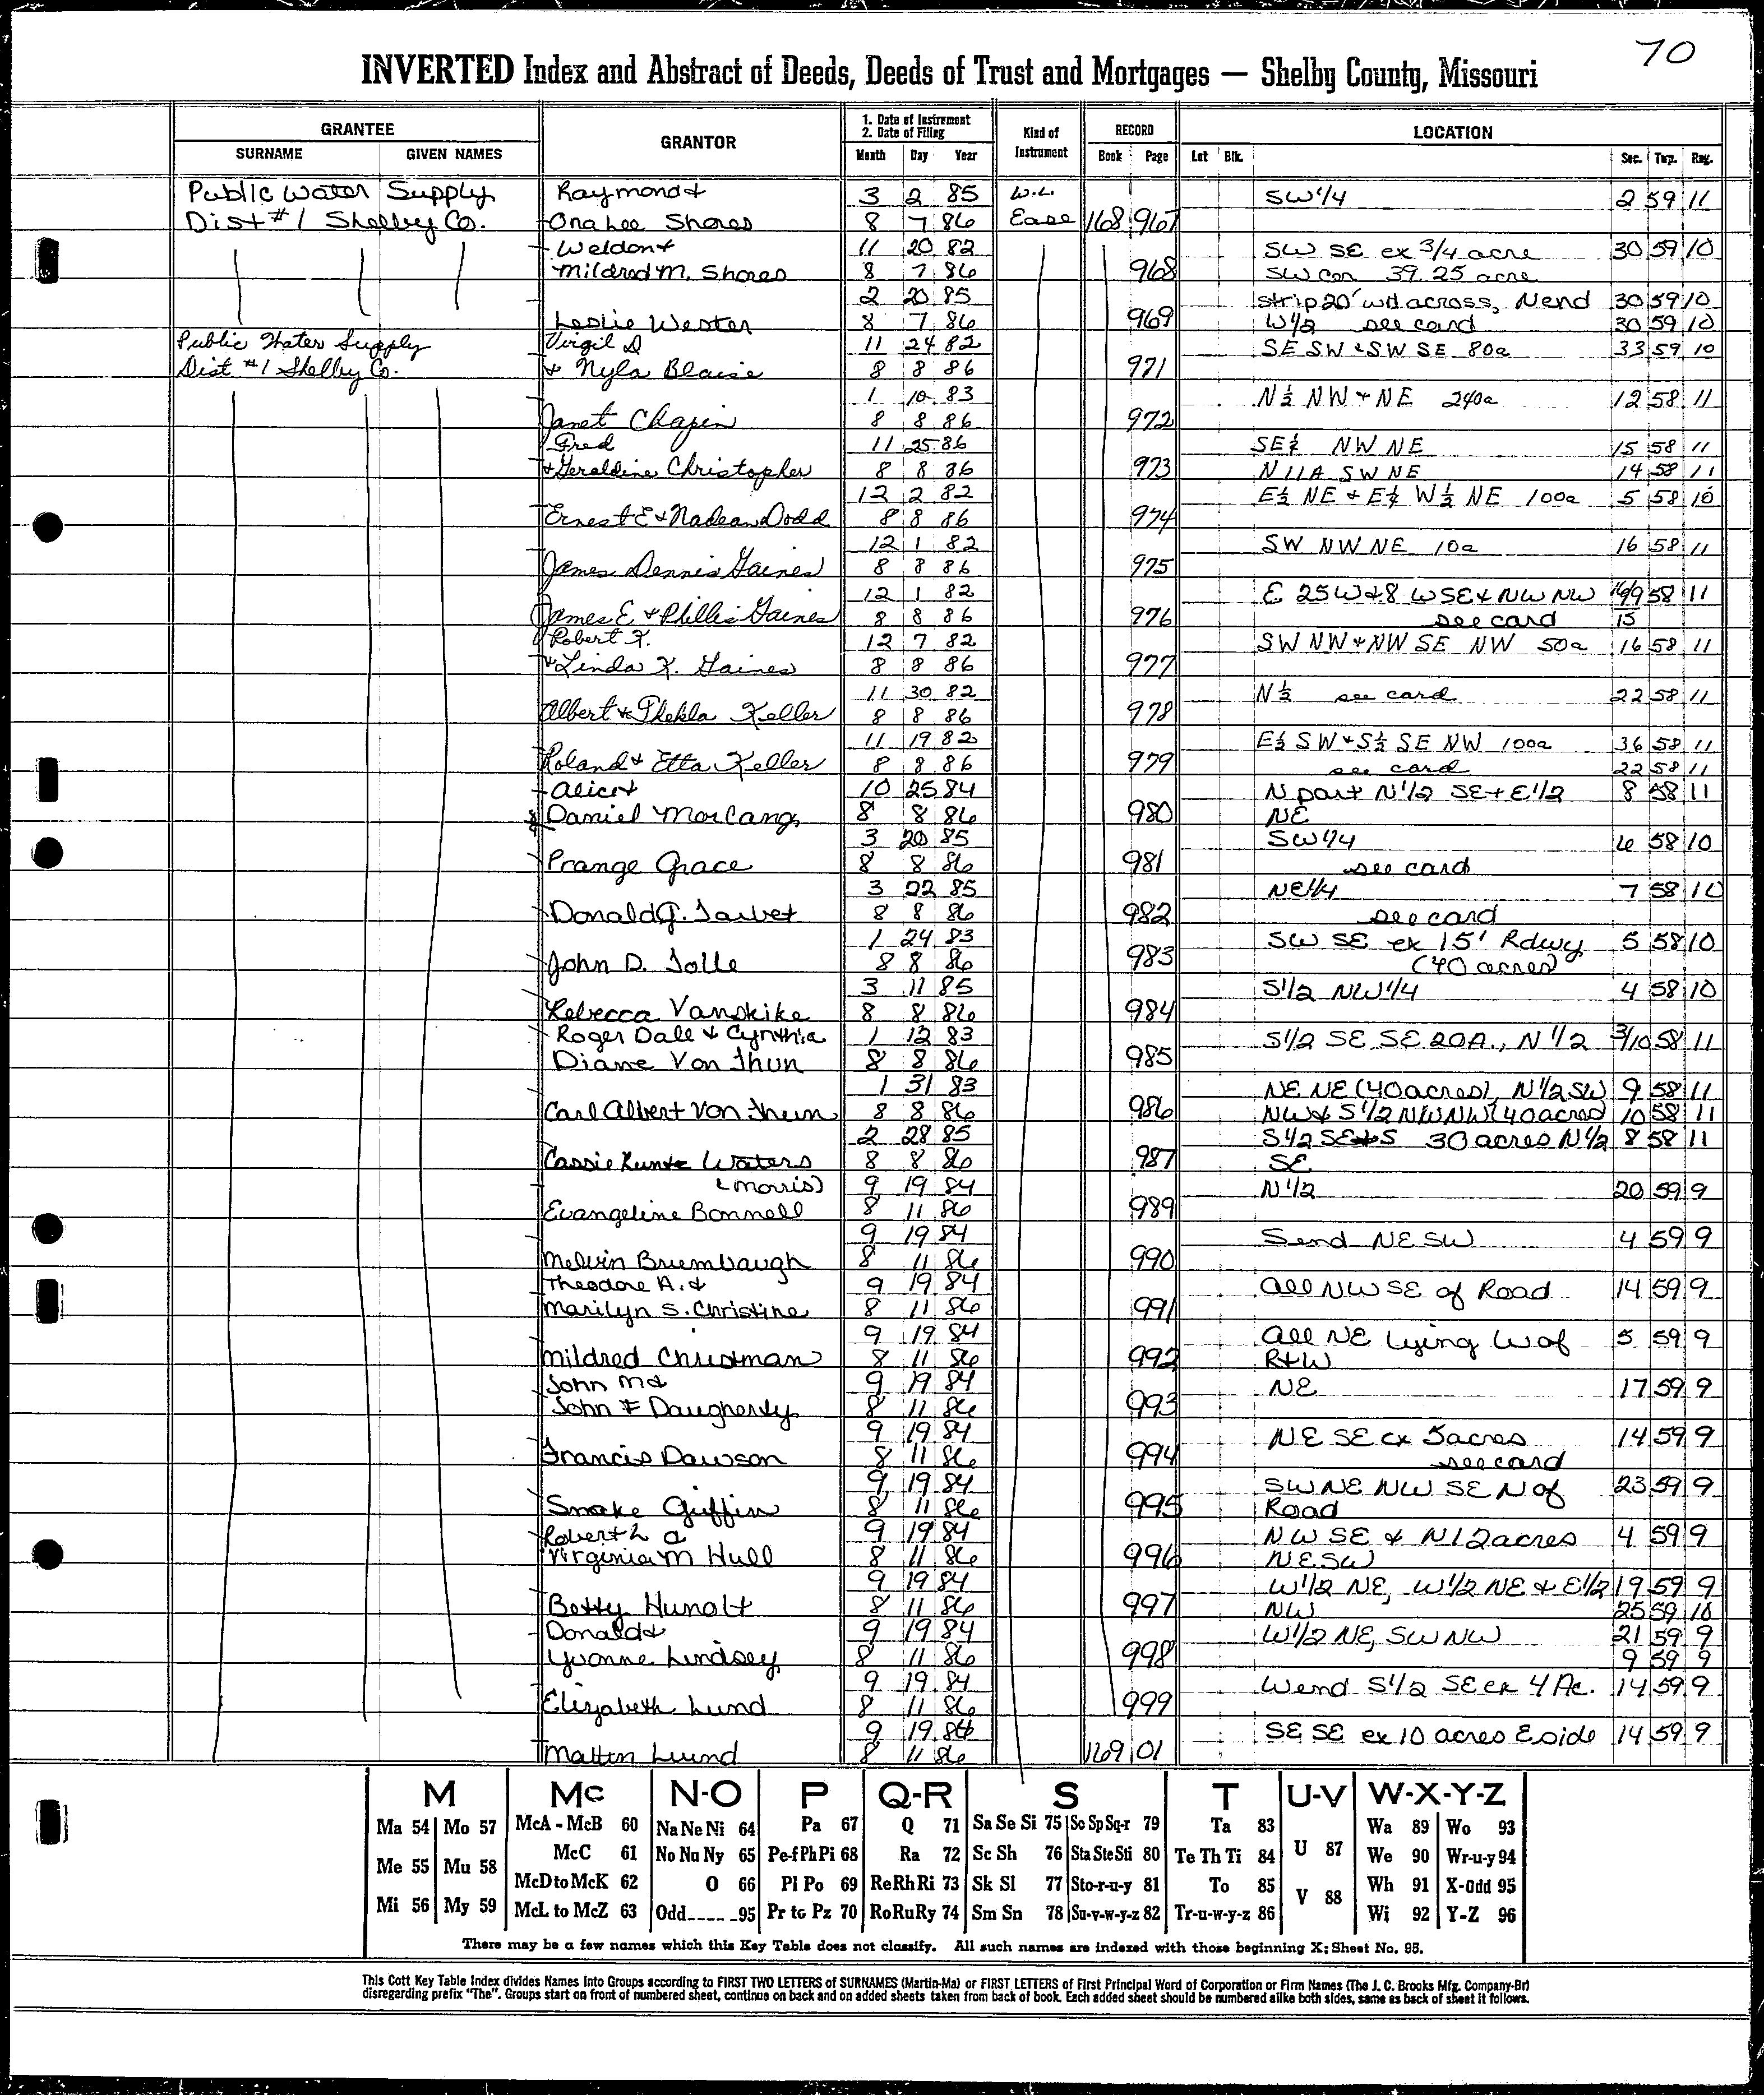 70
INVERTED Index and Abstract of Deeds, Deeds of Trust and Mortgages — Shelby County, Missouri
GRANTEE GRANTOR 1. Date of Instrument 2. Date of Filing Kind of Instrument RECORD LOCATION
SURNAME GIVEN NAMES Month Day Year Book Page Lot Blk. Sec. Twp. Rng.
Public Water Supply Raymond & 3 2 85 W.L. SW 1/4 2 59 11
Dist #1 Shelby Co. Ona Lee Shores 8 7 86 Ease 168 967
Weldon & 11 20 82 SW SE ex 3/4 acre 30 59 10
Mildred M. Shores 8 7 86 968 SW cor 39.25 acre
2 20 85 strip 20' wd across, N end 30 59 10
Leslie Wester 8 7 86 969 W 1/2 see card 30 59 10
Public Water Supply Virgil D 11 24 82 SE SW & SW SE 80a 33 59 10
Dist #1 Shelby Co. & Nyla Blaise 8 8 86 971
1 10 83 N½ NW & NE 240a 12 58 11
Janet Chapin 8 8 86 972
Fred 11 25 86 SE¼ NW NE 15 58 11
& Geraldine Christopher 8 8 86 973 N 11A SW NE 14 58 11
12 2 82 E½ NE & E½ W½ NE 100a 5 58 10
Ernest E & Nadean Dodd 8 8 86 974
12 1 82 SW NW NE 10a 16 58 11
James Dennis Gaines 8 8 86 975
12 1 82 E 25 W & 8 W SE & NW NW 16/9 58 11
James E & Phillis Gaines 8 8 86 976 see card 15
Robert K. 12 7 82 SW NW & NW SE NW 50a 16 58 11
& Linda K. Gaines 8 8 86 977
11 30 82 N½ see card 22 58 11
Albert & Thekla Keller 8 8 86 978
11 19 82 E½ SW & S½ SE NW 100a 36 58 11
Roland & Etta Keller 8 8 86 979 see card 22 58 11
Alice & 10 25 84 N part N 1/2 SE & E 1/2 8 58 11
Daniel 8 8 86 980 NE
3 20 85 SW 1/4 6 58 10
Prange Grace 8 8 86 981 see card
3 22 85 NE 1/4 7 58 10
Donald G. Tarvet 8 8 86 982 see card
1 24 83 SW SE ex 15' Rdwy 5 58 10
John D. Tolle 8 8 86 983 (40 acres)
3 11 85 S 1/2 NW 1/4 4 58 10
Rebecca Vanskike 8 8 86 984
Roger Dale & Cynthia 1 12 83 S 1/2 SE SE 20A., N 1/2 3/10 58 11
Diane Von Thun 8 8 86 985
1 31 83 NE NE (40 acres), N 1/2 SW 9 58 11
Carl Albert Von Thun 8 8 86 986 NW & S 1/2 NW NW (40 acres) 10 58 11
2 28 85 S 1/2 SE & S 30 acres N 1/2 8 58 11
Cassie Waters 8 8 86 987 SE
(Morris) 9 19 84 N 1/2 20 59 9
Evangeline Bonnell 8 11 86 989
9 19 84 S end NE SW 4 59 9
Melvin Brumbaugh 8 11 86 990
Theodore A. & 9 19 84 all NW SE of Road 14 59 9
Marilyn S. Christine 8 11 86 991
9 19 84 all NE lying W of 5 59 9
Mildred Christman 8 11 86 992 R+W
John M & 9 19 84 NE 17 59 9
John F Daugherty 8 11 86 993
9 19 84 NE SE ex 5 acres 14 59 9
Francis Dawson 8 11 86 994 see card
9 19 84 SW NE NW SE N of 23 59 9
Smoke Griffin 8 11 86 995 Road
Robert L 9 19 84 NW SE & N 12 acres 4 59 9
Virginia M Hull 8 11 86 996 NE SW
9 19 84 W 1/2 NE, W 1/2 NE & E 1/2 19 59 9
Betty Hunolt 8 11 86 997 NW 25 59 10
Donald & 9 19 84 W 1/2 NE, SW NW 21 59 9
Yvonne Lindsey 8 11 86 998 9 59 9
9 19 84 W end S 1/2 SE ex 4 Ac. 14 59 9
Elizabeth Lund 8 11 86 999
9 19 84 SE SE ex 10 acres E side 14 59 9
Lund 8 11 86 169 01
M Mc N-O P Q-R S T U-V W-X-Y-Z
Ma 54 Mo 57 McA - McB 60 Na Ne Ni 64 Pa 67 Q 71 Sa Se Si 75 So Sp Sq-r 79 Ta 83 Wa 89 Wo 93
Me 55 Mu 58 McC 61 No Nu Ny 65 Pe-f Ph Pi 68 Ra 72 Sc Sh 76 Sta Ste Sti 80 Te Th Ti 84 U 87 We 90 Wr-u-y 94
McD to McK 62 O 66 Pl Po 69 Re Rh Ri 73 Sk Sl 77 Sto-r-u-y 81 To 85 V 88 Wh 91 X-Odd 95
Mi 56 My 59 McL to McZ 63 Odd 95 Pr to Pz 70 Ro Ru Ry 74 Sm Sn 78 Su-v-w-y-z 82 Tr-u-w-y-z 86 Wi 92 Y-Z 96
There may be a few names which this Key Table does not classify. All such names are indexed with those beginning X; Sheet No. 95.
This Cott Key Table Index divides Names Into Groups according to FIRST TWO LETTERS of SURNAMES (Martin-Ma) or FIRST LETTERS of First Principal Word of Corporation or Firm Names (The J. C. Brooks Mfg. Company-Br)
disregarding prefix "The". Groups start on front of numbered sheet, continue on back and on added sheets taken from back of book. Each added sheet should be numbered alike both sides, same as back of sheet it follows.